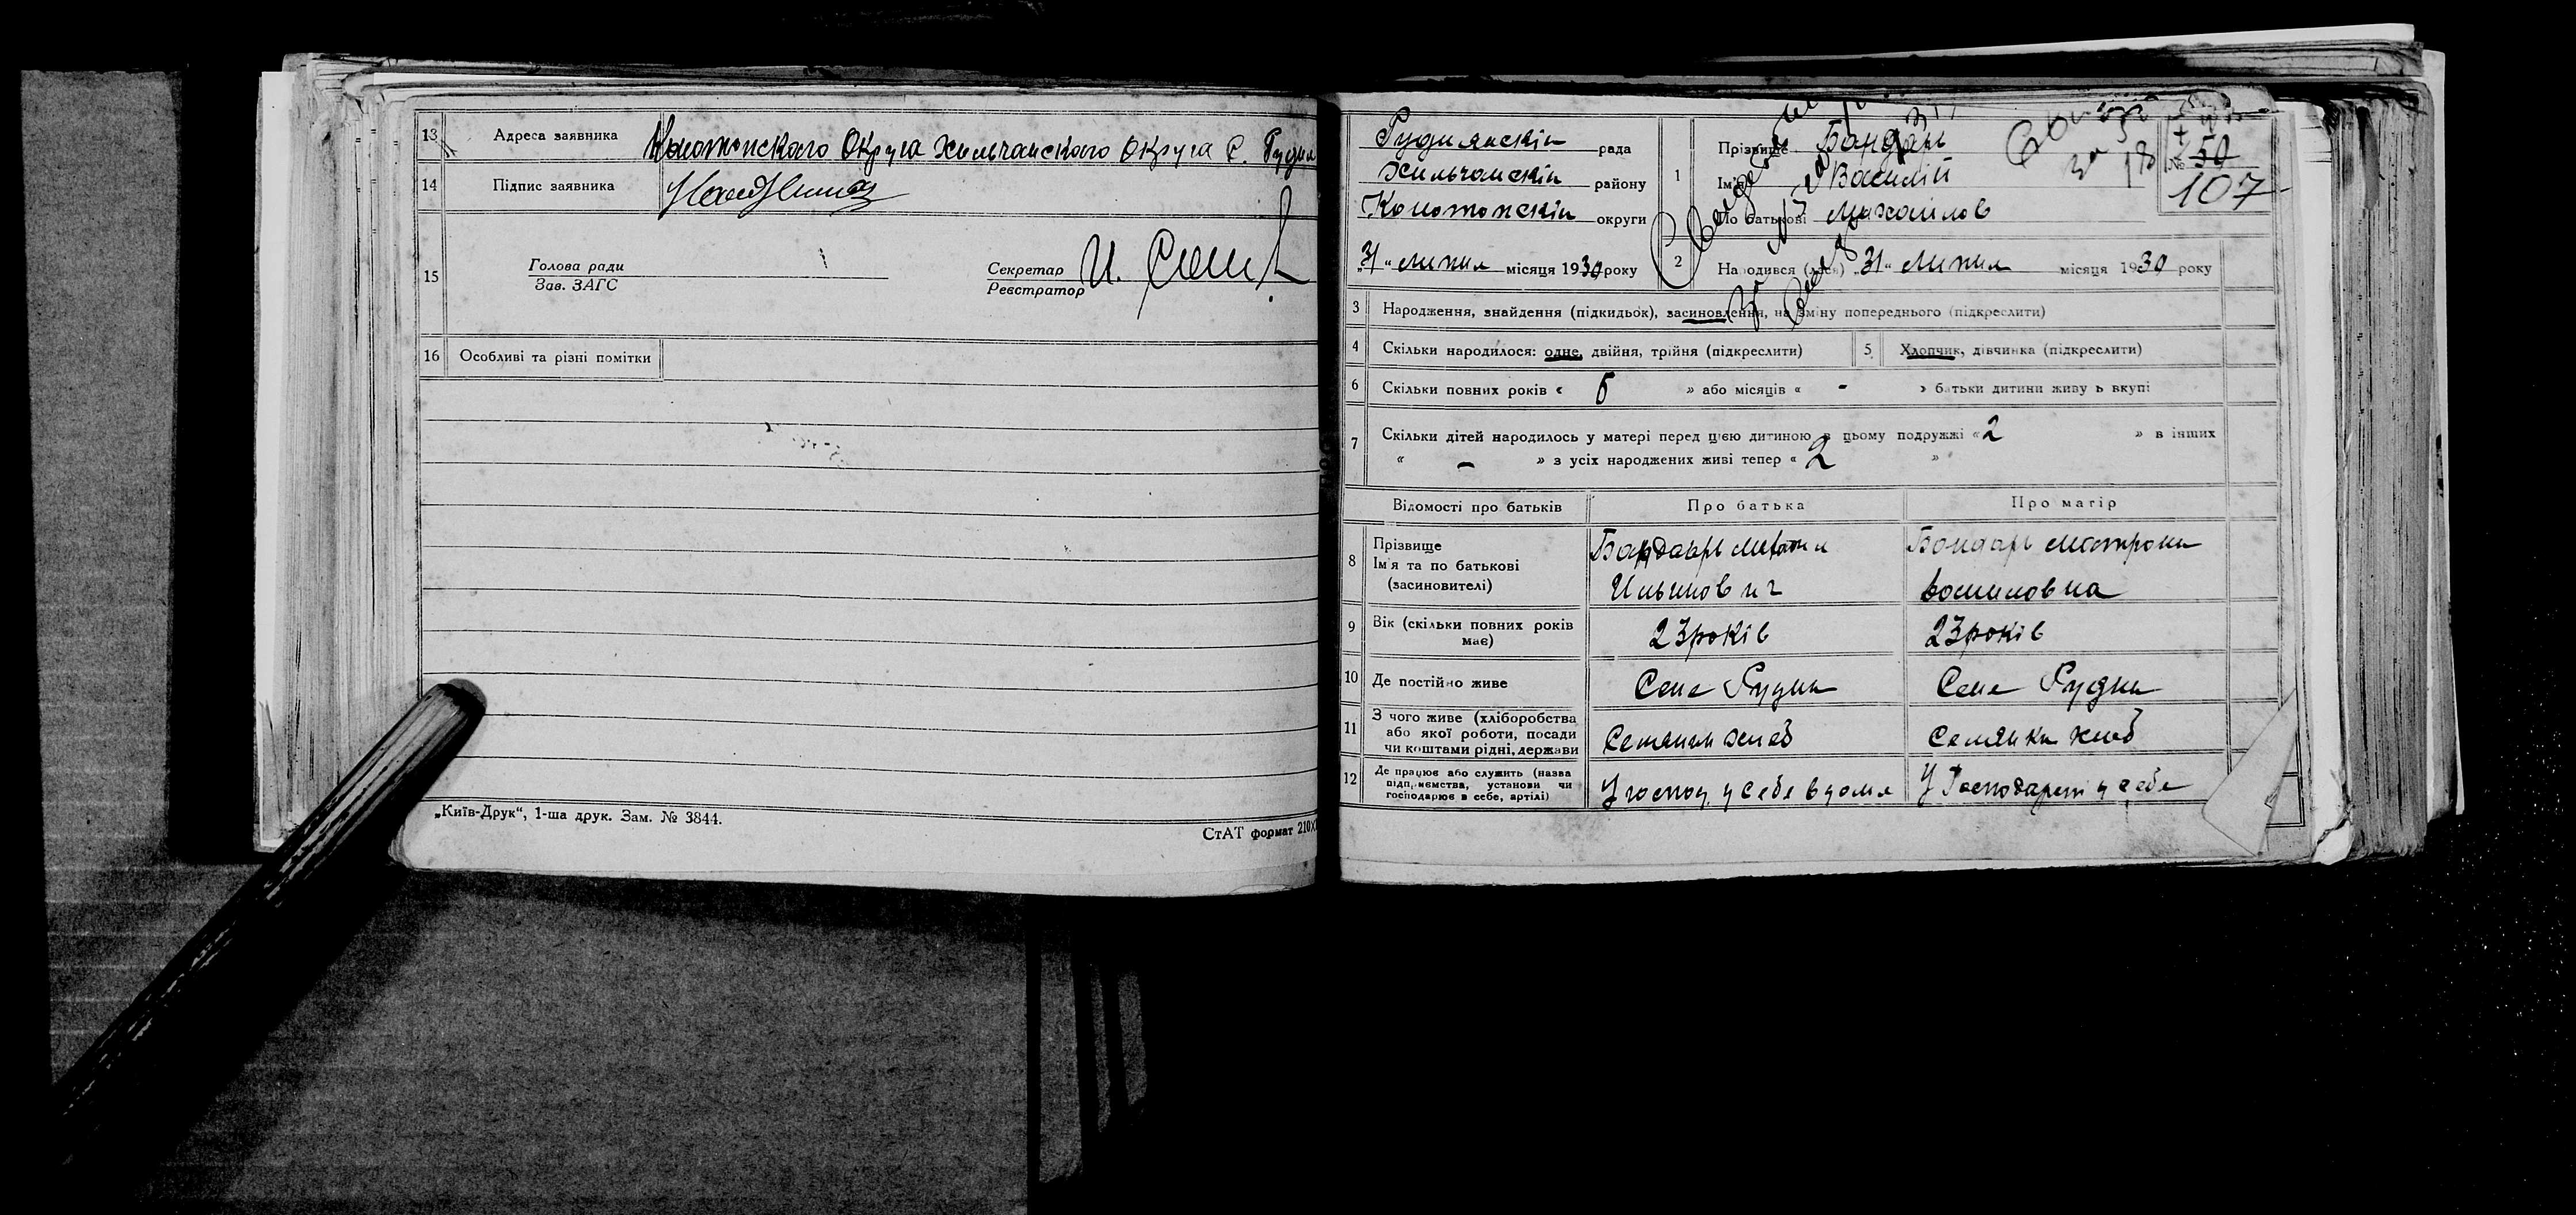 13 Адреса заявника Конотопского Округа Хильчанского Округа С. Рудня
14 Підпис заявника
15 Голова ради
Зав. ЗАГС
Секретар И.
Реєстратор
16 Особливі та різні помітки
„Київ-Друк“, 1-ша друк. Зам. № 3844.
СтАТ формат 210X
Руднянскін рада
Хильчанскін району
Конотопскін округи
„31“ Липня місяця 1930 року
1 Прізвище Бандарь
Ім'я Василій
По батькові Михайлов
№ 50
107
2 Народився (лася) „31“ Липня місяця 1930 року
3 Народження, знайдення (підкидьок), засиновлення, на зміну попереднього (підкреслити)
4 Скільки народилося: одне, двійня, трійня (підкреслити)
5 Хлопчик, дівчинка (підкреслити)
6 Скільки повних років « 5 » або місяців « - » батьки дитини живуть вкупі
7 Скільки дітей народилось у матері перед цією дитиною в цьому подружжі « 2 » в інших
« – » з усіх народжених живі тепер « 2 »
Відомості про батьків Про батька Про матір
8 Прізвище
Ім'я та по батькові
(засиновителі)
Бандарь
Ильинович
Бондарь Мотрона
9 Вік (скільки повних років має) 23 років 23 років
10 Де постійно живе Селе Рудни Селе Рудни
11 З чого живе (хліборобства
або якої роботи, посади
чи коштами рідні, держави
Селянин хлеб
Селянка хлеб
12 Де працює або служить (назва
підприємства, установи чи
господарює в себе, артілі)
У господ у себе вдома
У Господарст у себе